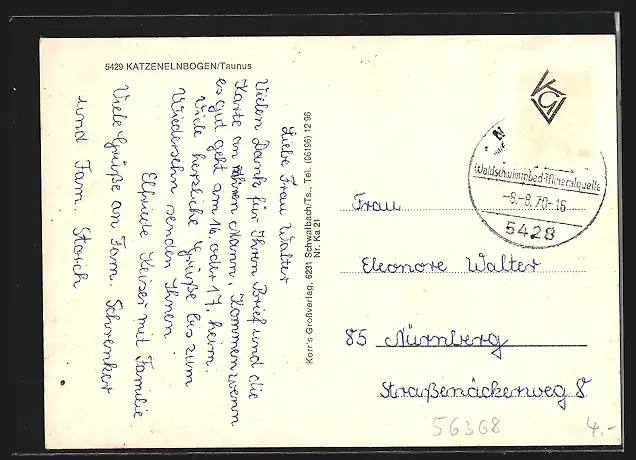 5429 KATZENELNBOGEN/Taunus
Liebe Frau Walter
Vielen Dank für Ihren Brief und die
Karte an Ihnen Mann, Kommen wenn
es gut geht am 16 oder 17. heim.
Viele herzliche Grüße bis zum
Wiedersehn senden Ihnen
Elfriede Keiser mit Familie
Viele Grüße an Fam. Schrenker
und Fam. Storch
Korr's Großverlag, 6231 Schwalbach/Ts., Tel. (06196) 12 96
Nr. Ka 21
Waldschwimmbad-Mineralquelle
-8.-8.70-16
5429
Frau
Eleonore Walter
85 Nürnberg
Straßenäckerweg 8
56368
4.-